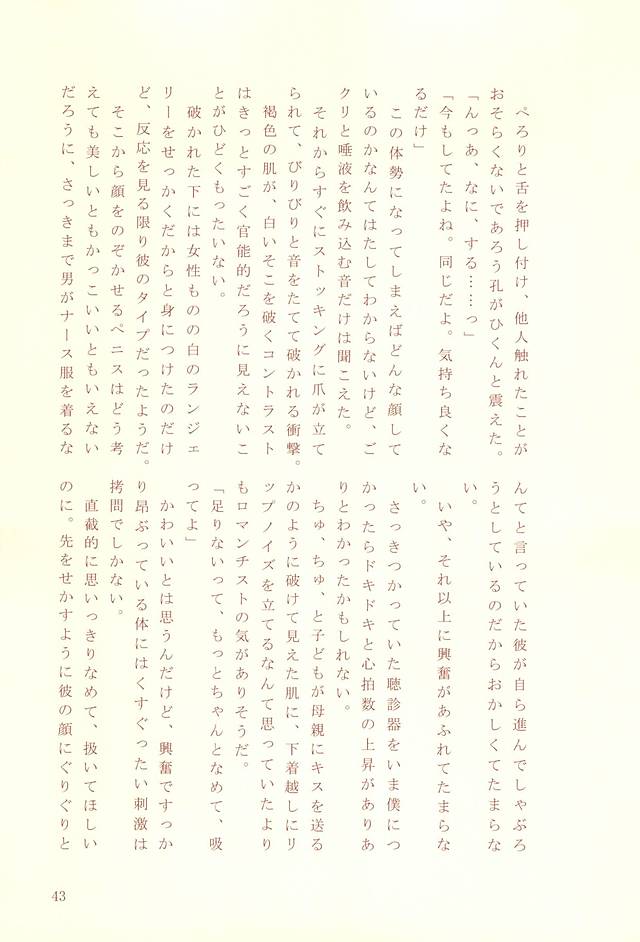 ぺろりと舌を押し付け、他人触れたことが
おそらくないであろう孔がひくんと震えた。
「んっあ、なに、する……っ」
「今もしてたよね。同じだよ。気持ち良くな
るだけ」
この体勢になってしまえばどんな顔して
いるのかなんてはたしてわからないけど、ご
クリと唾液を飲み込む音だけは聞こえた。
それからすぐにストッキングに爪が立て
られて、びりびりと音をたてて破かれる衝撃。
褐色の肌が、白いそこを破くコントラスト
はきっとすごく官能的だろうに見えないこ
とがひどくもったいない。
破かれた下には女性ものの白のランジェ
リーをせっかくだからと身につけたのだけ
ど、反応を見る限り彼のタイプだったようだ。
そこから顔をのぞかせるペニスはどう考
えても美しいともかっこいいともいえない
だろうに、さっきまで男がナース服を着るな
んてと言っていた彼が自ら進んでしゃぶろ
うとしているのだからおかしくてたまらな
い。
いや、それ以上に興奮があふれてたまらな
い。
さっきつかっていた聴診器をいま僕につ
かったらドキドキと心拍数の上昇がありあ
りとわかったかもしれない。
ちゅ、ちゅ、と子どもが母親にキスを送る
かのように破けて見えた肌に、下着越しにリ
ップノイズを立てるなんて思っていたより
もロマンチストの気がありそうだ。
「足りないって、もっとちゃんとなめて、吸
ってよ」
かわいいとは思うんだけど、興奮ですっか
り昂ぶっている体にはくすぐったい刺激は
拷問でしかない。
直截的に思いっきりなめて、扱いてほしい
のに。先をせかすように彼の顔にぐりぐりと
43